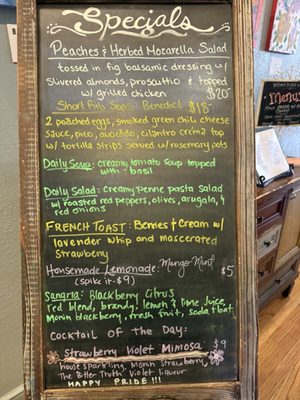 Specials
Peaches & Herbed Mozarella Salad
tossed in fig balsamic dressing w/
slivered almonds, prosciutto & topped
w/ grilled chicken $20
Short Rib Benedict $18
2 poached eggs, smoked green chili cheese
sauce, pico, avocado, cilantro crema top
w/ tortilla strips served w/ rosemary pots
Daily Soup: creamy tomato soup topped
with basil
Daily Salad: Creamy Penne pasta Salad
w/ roasted red peppers, olives, arugula, &
red onions
FRENCH TOAST: Berries & Cream w/
lavender whip and macerated
Strawberry
Housemade Lemonade: Mango Mint $5
(spike it $9)
Sangria: Blackberry Citrus
Red blend, brandy, lemon & lime juice,
Monin blackberry, fresh fruit, soda float
Cocktail of the Day:
Strawberry Violet Mimosa $9
house sparkling, Monin Strawberry,
The Bitter Truth Violet liqueur
HAPPY PRIDE!!!
Menu